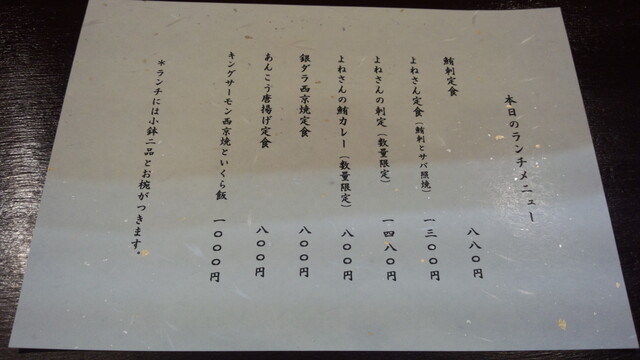 本日のランチメニュー
鮪刺定食 八八〇円
よねさん定食(鮪刺とサバ照焼) 一三〇〇円
よねさんの刺定(数量限定) 一四八〇円
よねさんの鮪カレー(数量限定) 八〇〇円
銀ダラ西京焼定食 八〇〇円
あんこう唐揚げ定食 八〇〇円
キングサーモン西京焼といくら飯 一〇〇〇円
＊ランチには小鉢二品とお椀がつきます。